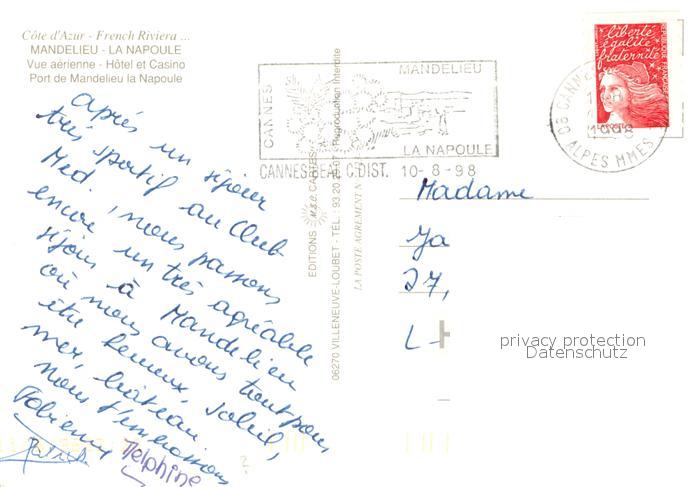 Côte d'Azur - French Riviera ...
MANDELIEU - LA NAPOULE
Vue aérienne - Hôtel et Casino
Port de Mandelieu la Napoule
Après un séjour
très sportif au Club
Med, nous passons
encore un très agréable
séjour à Mandelieu
où nous avons tout pour
être heureux, soleil,
mer, bateau
nous t'embrassons
Fabienne
Patrick
Delphine
?
EDITIONS M.S.E. CARTES
06270 VILLENEUVE-LOUBET - TEL : 93.20 Reproduction Interdite
LA POSTE AGREMENT N°
CANNES
MANDELIEU
LA NAPOULE
CANNES C.DIST. 10-8-98
06 CANNES
1998
ALPES MMES
liberté
égalité
fraternité
REPUBLIQUE FRANÇAISE
LA POSTE
Madame
Ja
27,
L-
privacy protection
Datenschutz